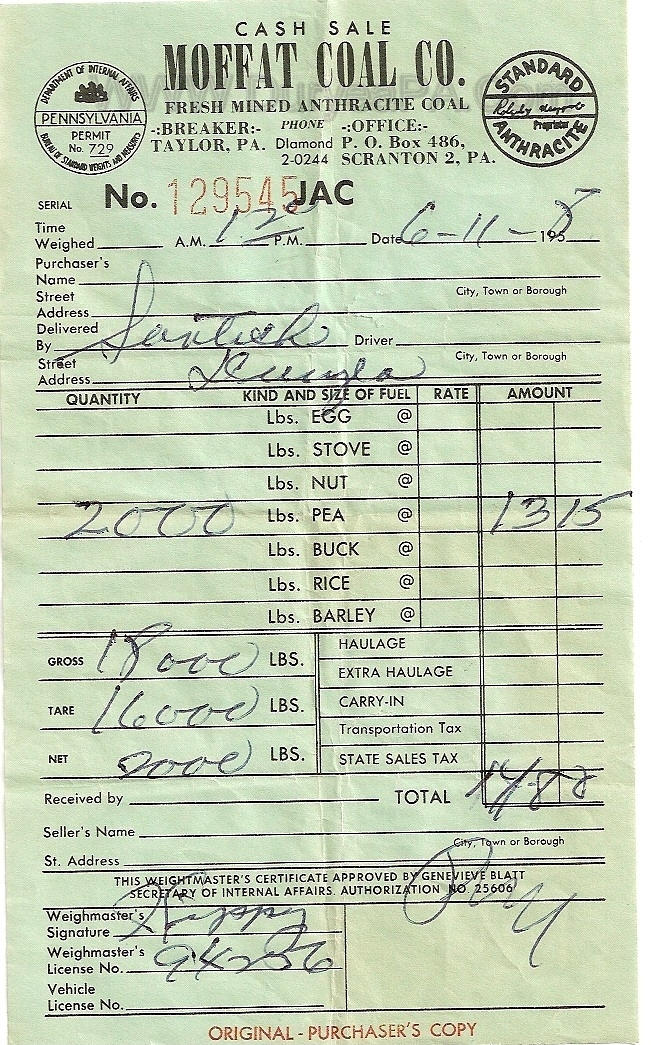 CASH SALE
MOFFAT COAL CO.
FRESH MINED ANTHRACITE COAL
DEPARTMENT OF INTERNAL AFFAIRS
PENNSYLVANIA
PERMIT
No. 729
BUREAU OF STANDARD WEIGHTS AND MEASURES
-:BREAKER:- PHONE -:OFFICE:-
TAYLOR, PA. DIamond P. O. Box 486,
2-0244 SCRANTON 2, PA.
STANDARD
Proprietor
ANTHRACITE
SERIAL No. 129545 JAC
Time
Weighed A.M. 12 P.M. Date 6-11-195
Purchaser's
Name
Street City, Town or Borough
Address
Delivered
By Driver
Street City, Town or Borough
Address
QUANTITY KIND AND SIZE OF FUEL RATE AMOUNT
Lbs. EGG @
Lbs. STOVE @
Lbs. NUT @
2000 Lbs. PEA @ 13 15
Lbs. BUCK @
Lbs. RICE @
Lbs. BARLEY @
GROSS 18000 LBS. HAULAGE
EXTRA HAULAGE
TARE 16000 LBS. CARRY-IN
Transportation Tax
NET 2000 LBS. STATE SALES TAX
Received by TOTAL
Seller's Name
City, Town or Borough
St. Address
THIS WEIGHTMASTER'S CERTIFICATE APPROVED BY GENEVIEVE BLATT
SECRETARY OF INTERNAL AFFAIRS. AUTHORIZATION NO. 25606
Weighmaster's
Signature
Weighmaster's
License No. 94256
Vehicle
License No.
ORIGINAL - PURCHASER'S COPY